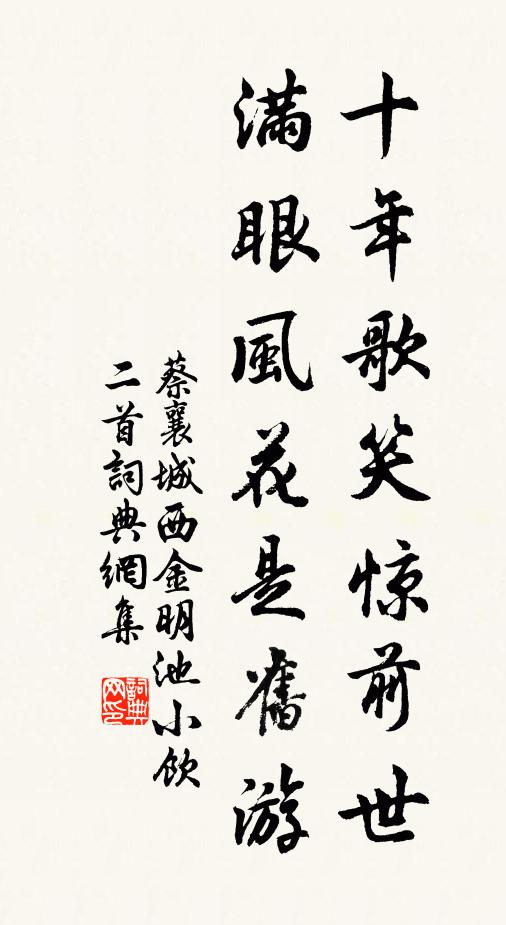 十年歌笑惊前世
滿眼風花是舊游
蔡襄城西金明池小飲
二首詞典網集
詞典网印